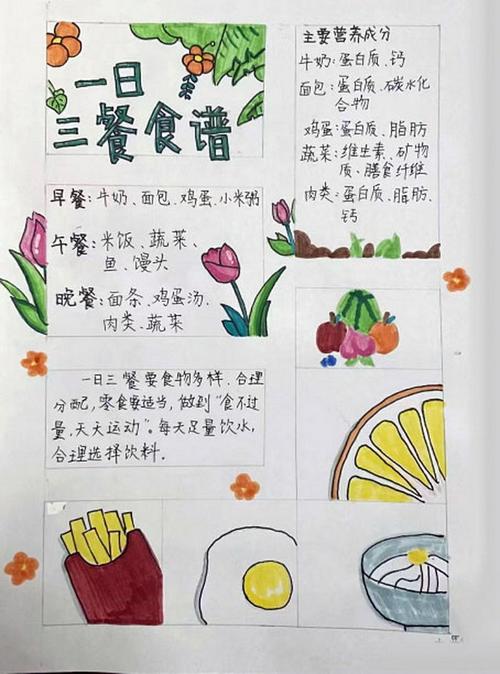 一日
三餐食谱
早餐:牛奶、面包、鸡蛋、小米粥
午餐:米饭、蔬菜、
鱼、馒头
晚餐:面条、鸡蛋汤、
肉类、蔬菜
一日三餐要食物多样、合理
分配,零食要适当,做到“食不过
量,天天运动”。每天足量饮水,
合理选择饮料.
主要营养成分
牛奶:蛋白质、钙
面包:蛋白质、碳水化
合物
鸡蛋:蛋白质、脂肪
蔬菜:维生素、矿物
质、膳食纤维
肉类:蛋白质、脂肪、
钙